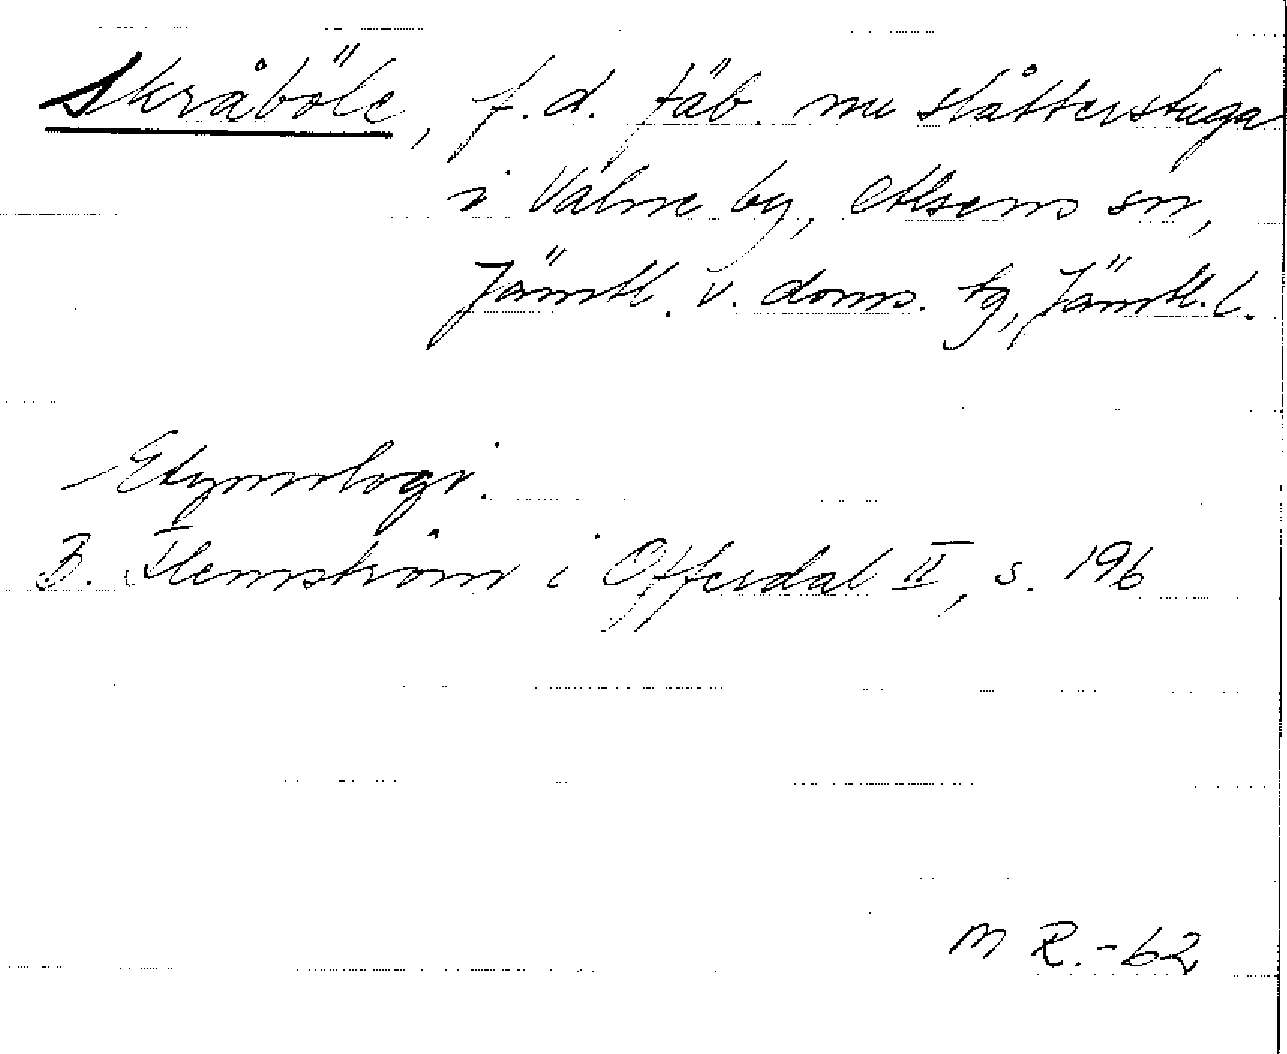 Skråböle, f.d. fäb. nu slåtterstuga
i Valne by, Alsens sn,
Jämtl. v. doms. tg, Jämtl. l.
Etymologi.
B. Flemström i Offerdal II, s. 196
M R.-62